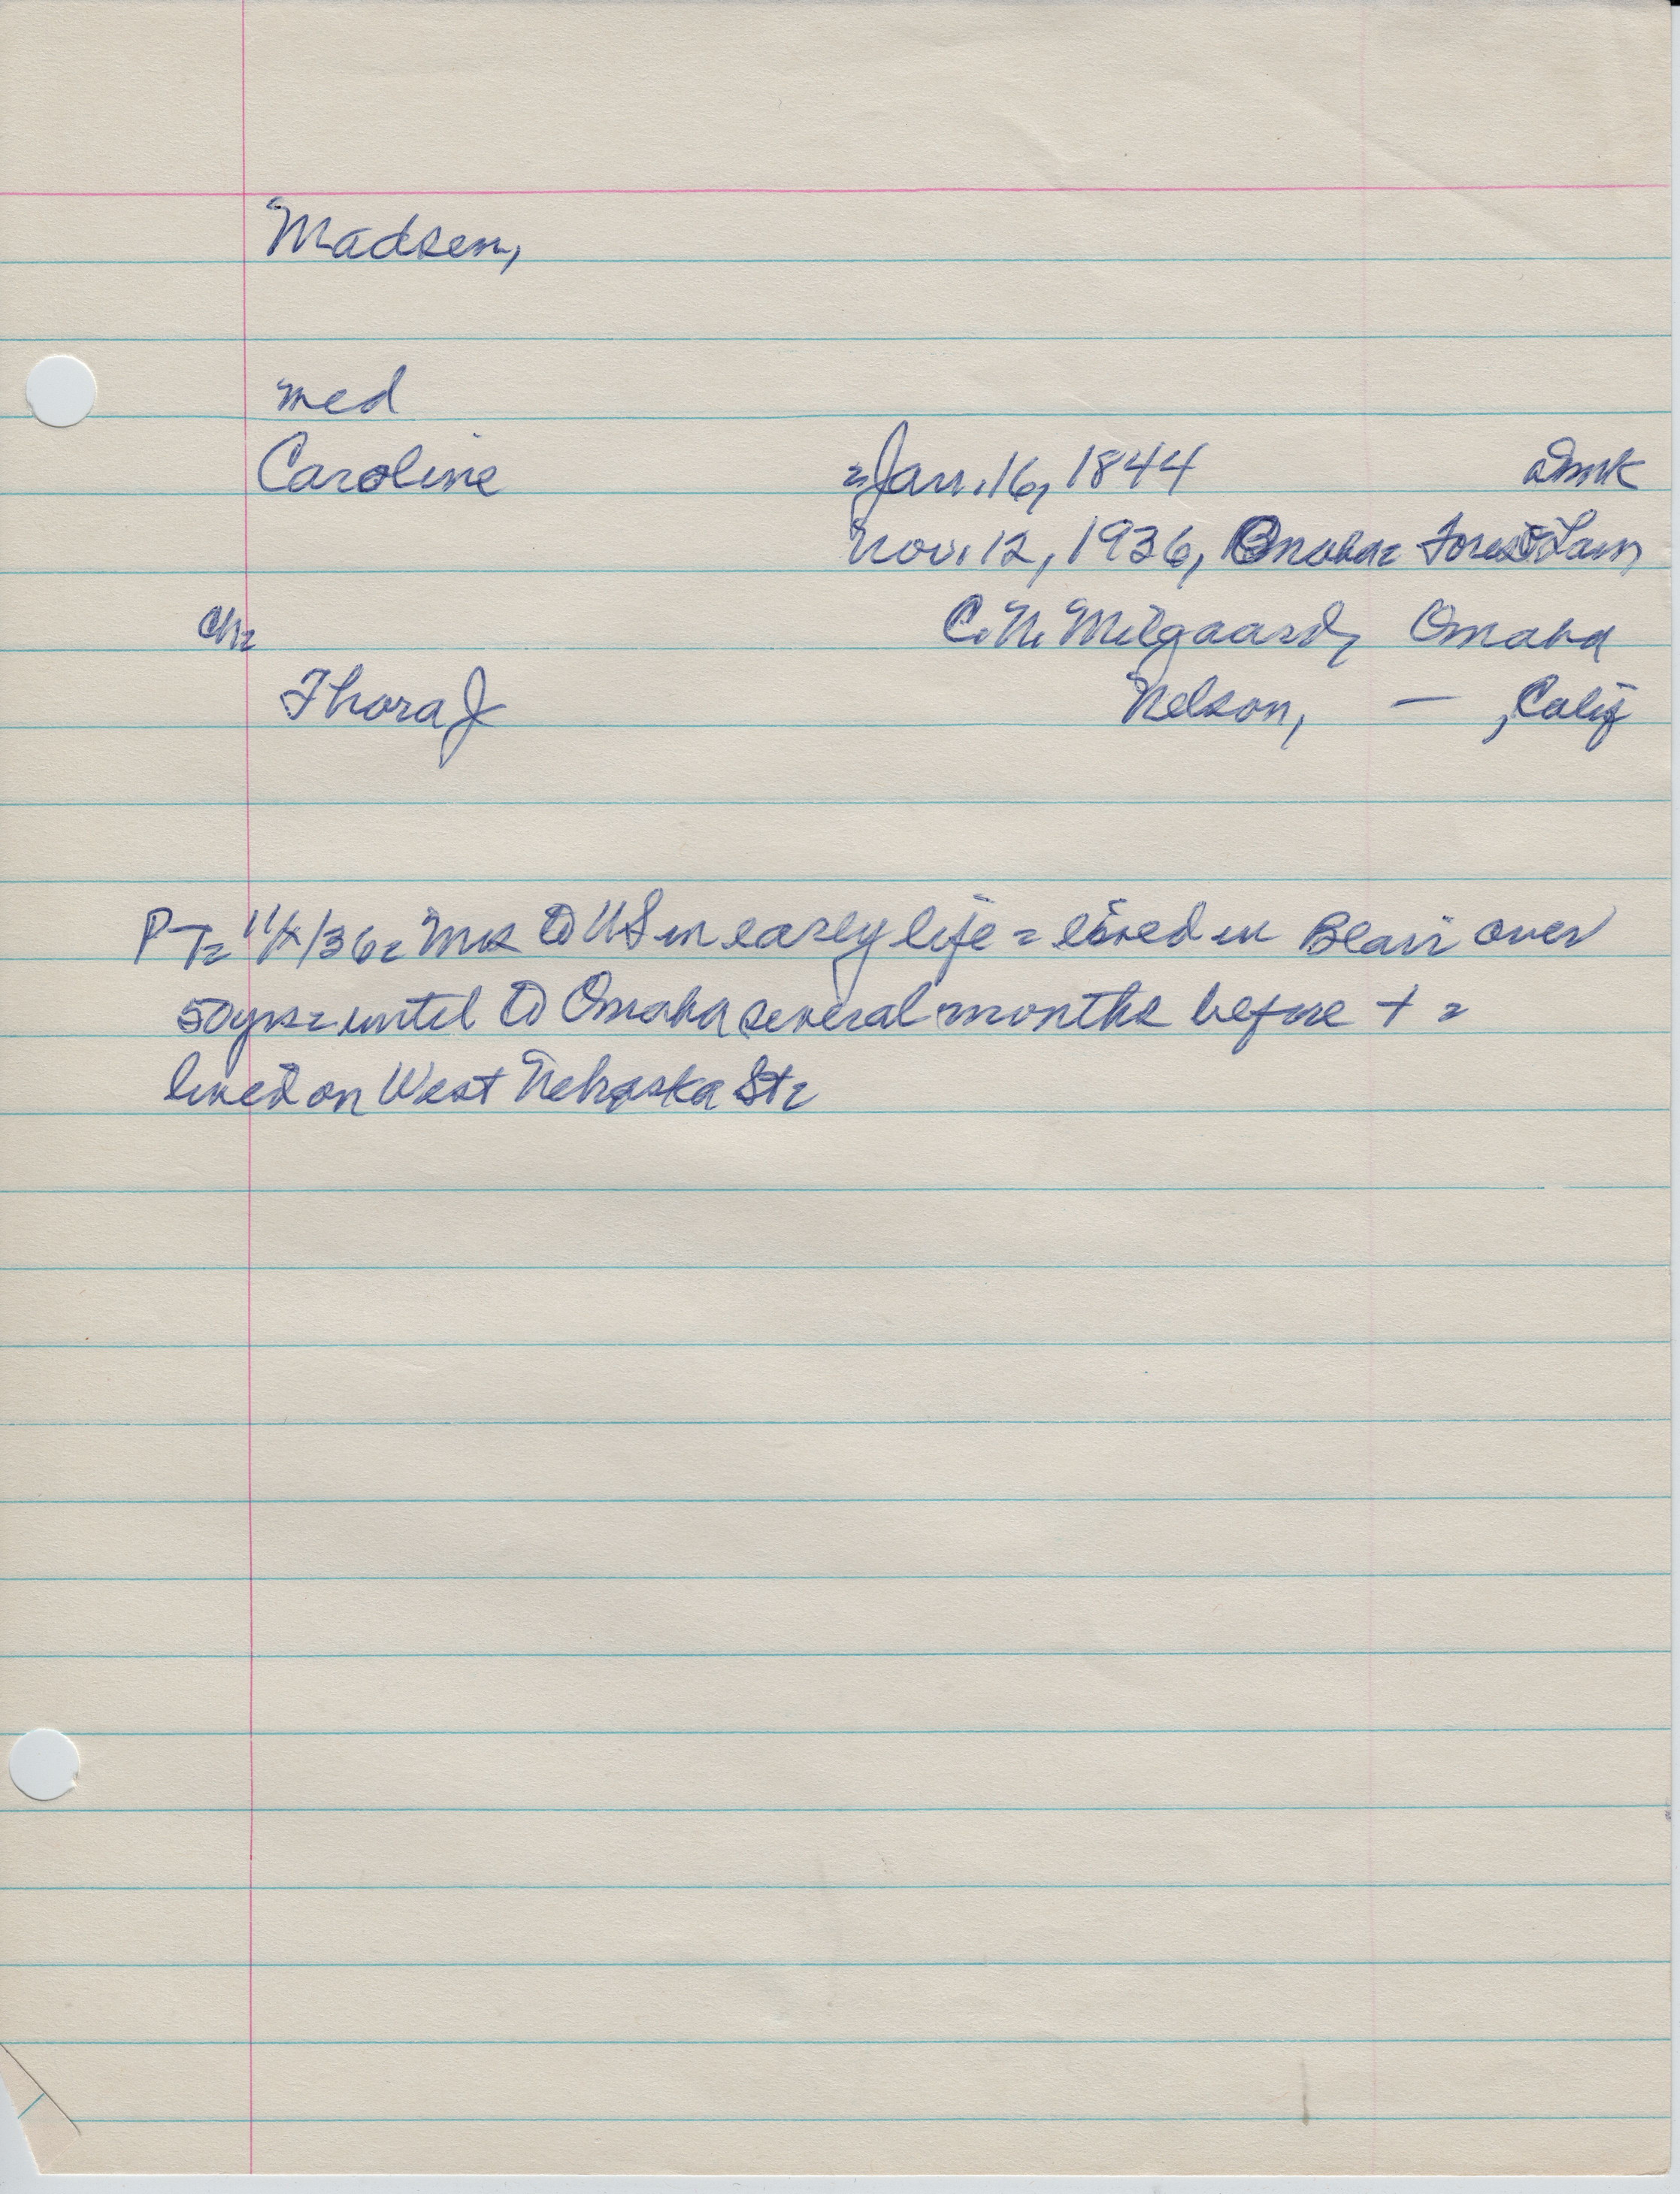 Madsen,
med
Caroline = Jan. 16, 1844 Dmk
Nov. 12, 1936, Omaha = Forest Lawn
Ch =
C. N. Milgaard, Omaha
Thora J Nelson, — , Calif
PT = /36 = Mrs to US in early life = lived in Blair over
50 yrs = until to Omaha several months before + =
lived on West Nebraska St =